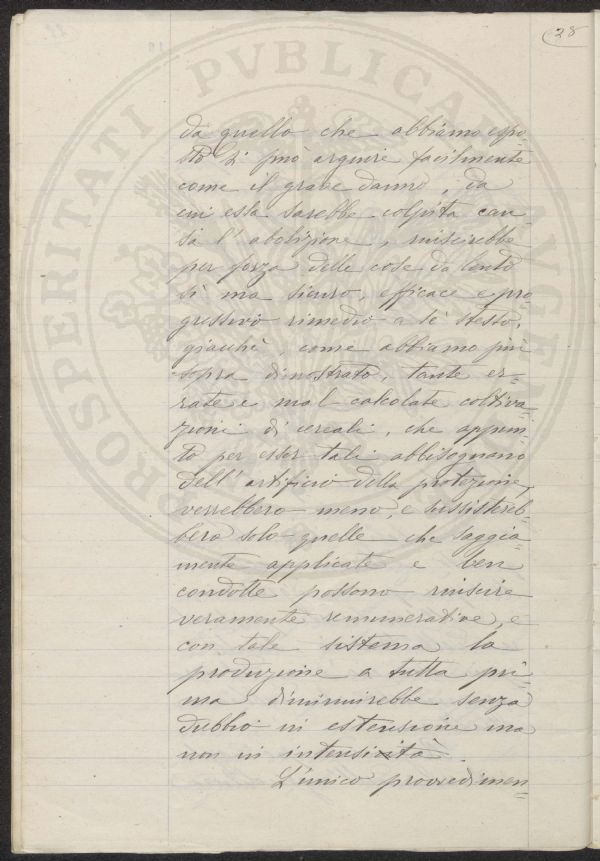 28
da quello che abbiamo espo=
sto si può arguire facilmente
come il grave danno, da
cui essa sarebbe colpita cau=
sa l'abolizione, riuscirebbe
per forza delle cose da lento
sì ma sicuro, efficace e pro=
gressivo rimedio a sè stesso,
giacchè, come abbiamo più
sopra dimostrato, tante er=
rate e mal calcolate coltiva=
zioni di cereali, che appun=
to per esser tali abbisognano
dell'artificio della protezione,
verrebbero meno, e sussistereb=
bero solo quelle che saggia=
mente applicate e ben
condotte possono riuscire
veramente remunerative, e
con tale sistema la
produzione a tutta pri=
ma diminuirebbe senza
dubbio in estensione ma
non in intensità.
L'unico provvedimen=
PROSPERITATI PVBLICAE AVGENDAE